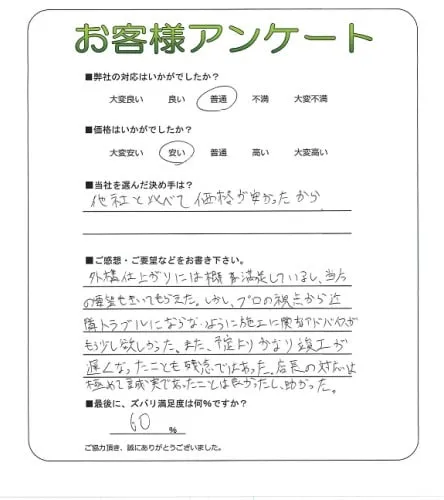 お客様アンケート
■弊社の対応はいかがでしたか？
大変良い 良い 普通 不満 大変不満
■価格はいかがでしたか？
大変安い 安い 普通 高い 大変高い
■当社を選んだ決め手は？
他社と比べて価格が安かったから
■ご感想・ご要望などをお書き下さい。
外構仕上がりには概ね満足しているし、当方
の要望もきいてもらえた。しかし、プロの視点から近
隣トラブルにならないように施工に関するアドバイスが
もう少し欲しかった。また、予定よりかなり竣工が
遅くなったことも残念ではあった。店長の対応は
極めて誠実であったことは良かったし、助かった。
■最後に、ズバリ満足度は何％ですか？
60 ％
ご協力頂き、誠にありがとうございました。